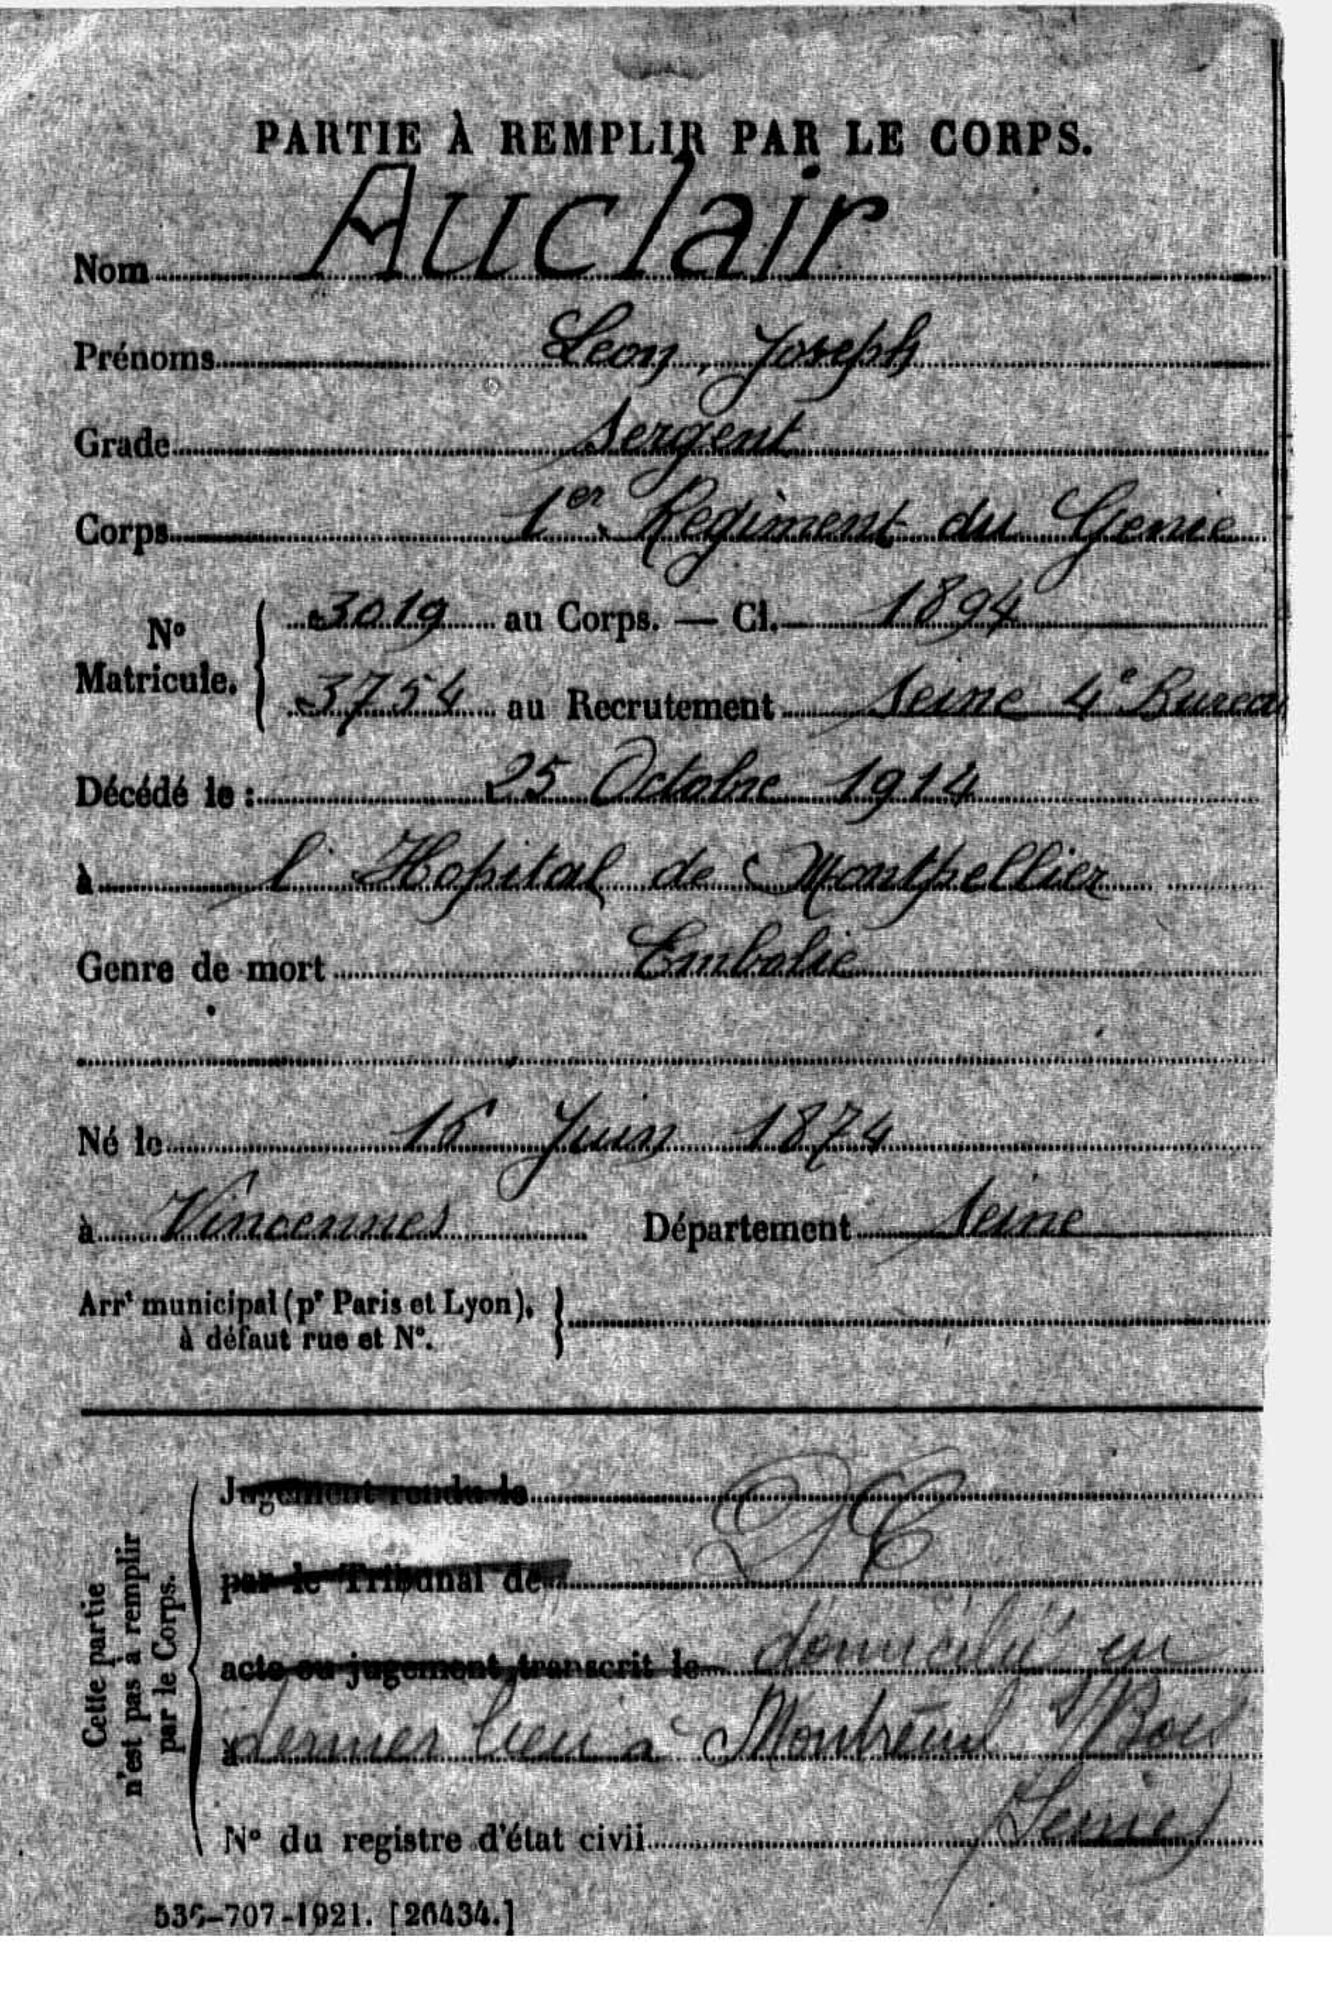 PARTIE À REMPLIR PAR LE CORPS.
Nom Auclair
Prénoms Leon, Joseph
Grade Sergent
Corps 1er Regiment du Genie
N° Matricule. 3019 au Corps. — Cl. 1894
3754 au Recrutement Seine 4e Bureau
Décédé le : 25 Octobre 1914
à l'Hopital de Montpellier
Genre de mort Embolie
Né le 16 Juin 1874
à Vincennes Département Seine
Arrt municipal (pr Paris et Lyon),
à défaut rue et N°.
Cette partie
n'est pas à remplir
par le Corps.
Jugement rendu le
par le Tribunal de
acte ou jugement transcrit le domicilié en
à dernier lieu à Montreuil s/Bois
(Seine)
N° du registre d'état civil
-707-1921. [26434.]